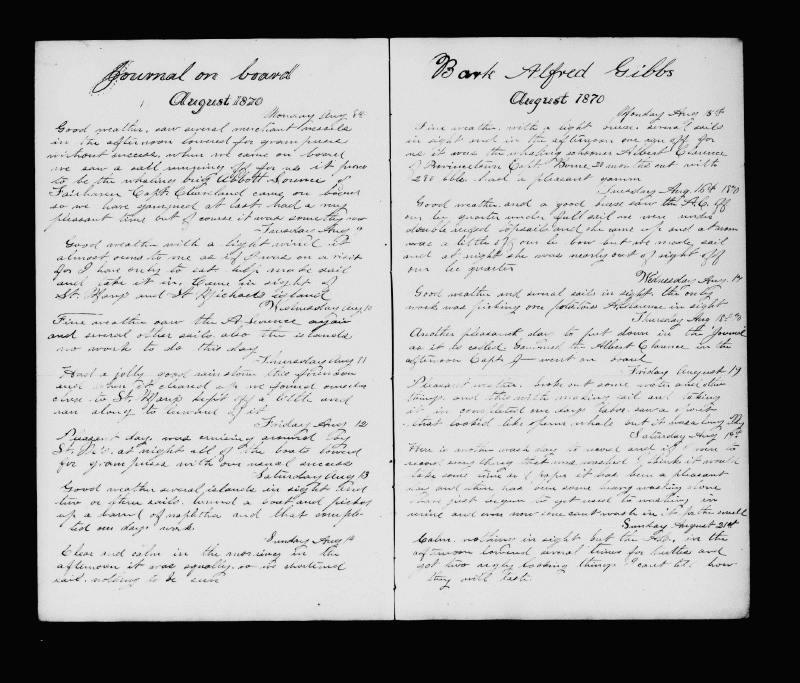 Journal on board
August 1870
Monday Aug 8th
Good weather, saw several merchant vessels
in the afternoon lowered for grampuses
without success. when we came on board
we saw a sail running off for us it proved
to be the whaling brig
Fairhaven Capt. Cleaveland came on board
so we have gammed at last. had a very
pleasant time but of course it was something new
Tuesday Aug 9
Good weather with a light wind it
almost seems to me as if I was on a visit
for I have only to eat help make sail
and take it in. Came in sight of
St. Marys and St Michaels island
Wednesday Aug 10
Fine weather saw the again
and several other sails also the islands
no work to do this day
Thursday Aug 11
Had a jolly good rainstorm this forenoon
and when it cleared up we found ourselves
close to St. Marys kept off a little and
ran along to leeward of it
Friday Aug 12
Pleasant day, was cruising around by
St. M's. at night all of the boats lowered
for grampuses with our usual success
Saturday Aug 13
Good weather several islands in sight and
two or three sails. lowered a boat and picked
up a barrel of naphtha and that comple-
ted our days work.
Sunday Aug 14
Clear and calm in the morning in the
afternoon it was squally, so we shortened
sail. nothing to be seen
Bark Alfred Gibbs
August 1870
Monday Aug 15th
Fine weather, with a light breeze, several sails
in sight and in the afternoon one ran off for
us it was the whaling schooner Albert Clarence
of Provincetown Capt. 20 months out with
280 bbls. had a pleasant gamm
Tuesday Aug 16th 1870
Good weather and a good breeze saw the A.C. off
our lee quarter under full sail we were under
double reefed topsails and she came up and at noon
was a little off our lee bow but we made sail
and at night she was nearly out of sight off
our lee quarter
Wednesday Aug. 17
Good weather and several sails in sight. the only
work was picking over potatoes A Clarence in sight
Thursday Aug 18
Another pleasant day to put down in the Journal
as it is called. Gammed the Albert Clarence in the
afternoon Capt. went on board
Friday August 19
Pleasant weather. broke out some water and other
things, and this with making sail and taking
it in completed our days labor. saw a
that looked like sperm whale but it was a
Saturday Aug
Here is another wash day to record and if I were to
record every thing that was washed I think it would
take some time as I hope it has been a pleasant
day and there has been some many washing done
I have just begun to get used to washing in
urine and even now one cant wash in it for the smell
Sunday August 21st
Calm. nothing in sight but the in the
afternoon lowered several times for turtles and
got two ugly looking things I cant tell how
they will taste